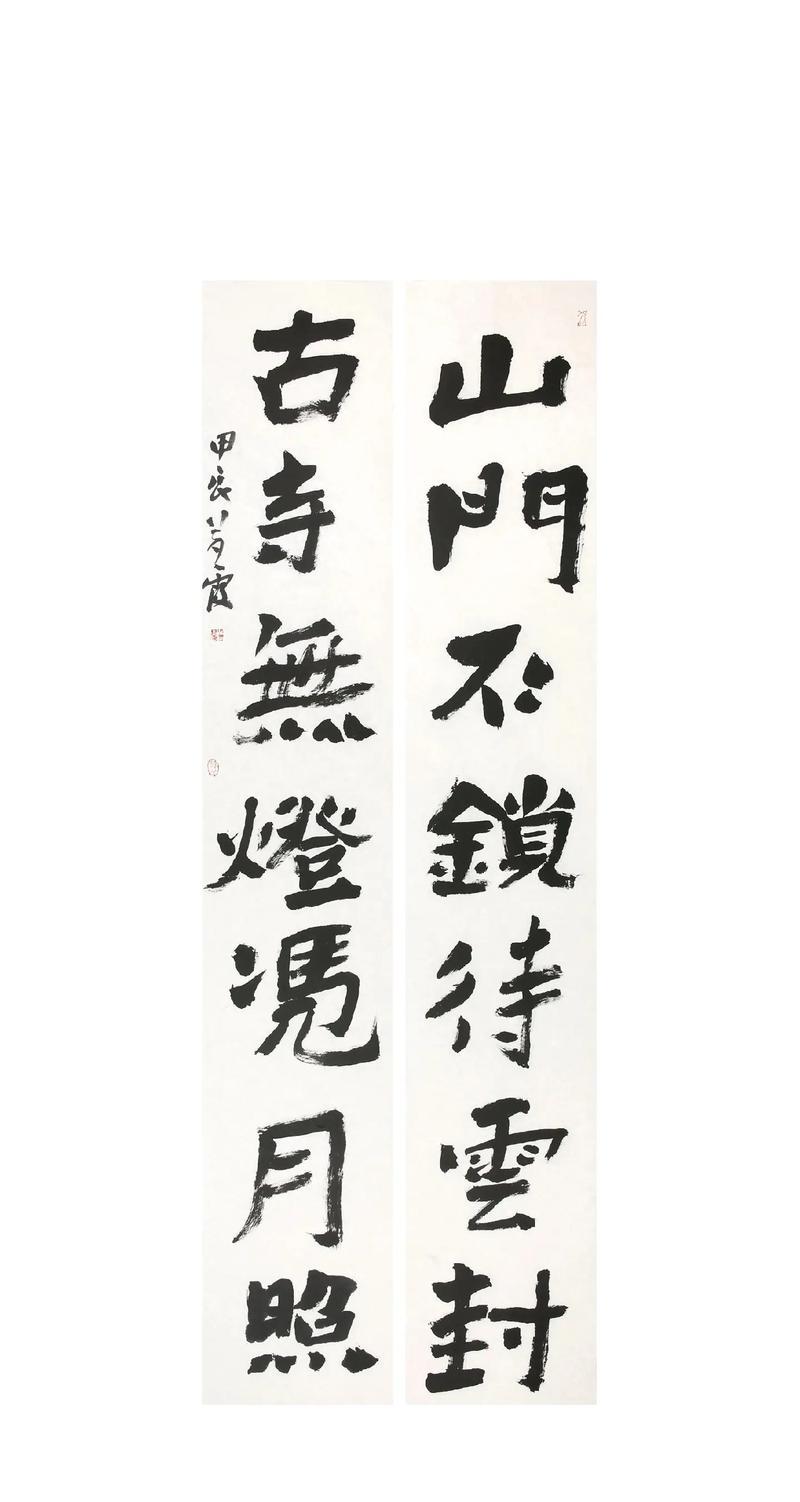 山門不鎖待雲封
古寺無燈凴月照
甲辰